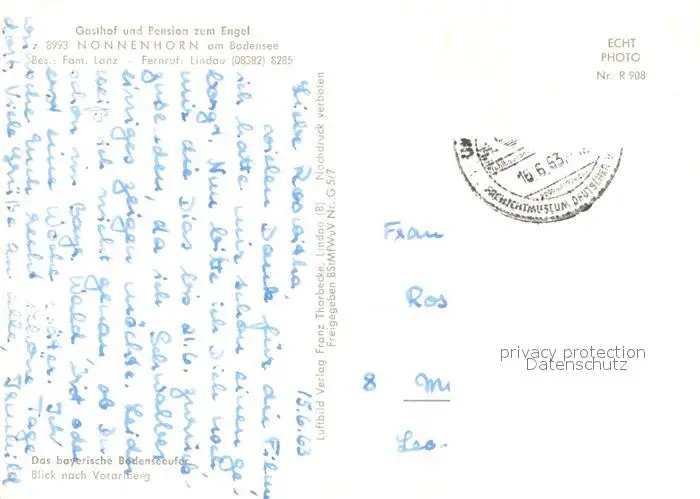 Gasthof und Pension zum Engel
8993 NONNENHORN am Bodensee
Bes.: Fam. Lanz - Fernruf: Lindau (08382) 8285
ECHT
PHOTO
Nr. R 908
16.6.63
FREILICHTMUSEUM DEUTSCHER
15.6.63
Liebe Roswitha,
vielen Dank für die Filme
ich hatte mir schon einen ge-
borgt. Nun bitte ich Dich noch
mir die Dias bis 21.6. zurück
zusenden, da ich Schwalbes
einiges zeigen möchte. Leider
weiß ich nicht genau, ob Du
schon im Bayr. Wald bist oder
erst eine Woche später. Ich
wünsche Euch recht schöne Tage
dort. Viele Grüße an alle,
Luftbild Verlag Franz Thorbecke, Lindau (B) Nachdruck verboten
Freigegeben BStMfWuV Nr. G 5/7
Frau
Ros
8 Mü
Leo
privacy protection
Datenschutz
Das bayerische Bodenseeufer
Blick nach Vorarlberg